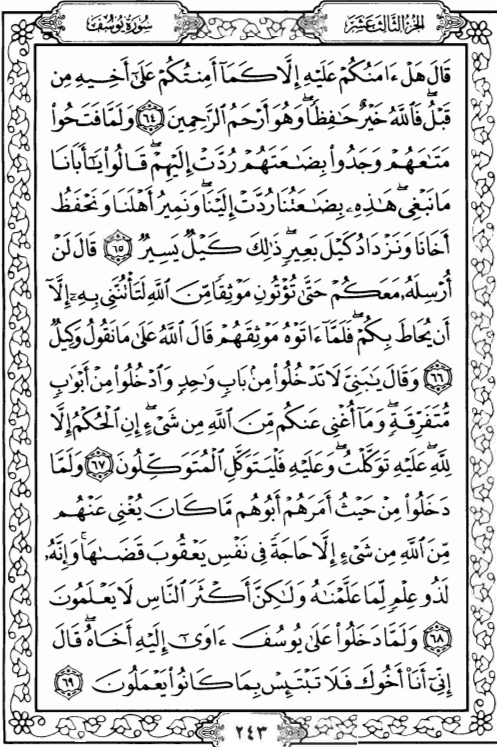 سُورَةُ يُوسُفَ
الجُزءُ الثَّالِثَ عَشَرَ
قَالَ هَلْ ءَامَنُكُمْ عَلَيْهِ إِلَّا كَمَآ أَمِنتُكُمْ عَلَىٰٓ أَخِيهِ مِن
قَبْلُ ۖ فَٱللَّهُ خَيْرٌ حَـٰفِظًا ۖ وَهُوَ أَرْحَمُ ٱلرَّٰحِمِينَ ٦٤ وَلَمَّا فَتَحُوا۟
مَتَـٰعَهُمْ وَجَدُوا۟ بِضَـٰعَتَهُمْ رُدَّتْ إِلَيْهِمْ ۖ قَالُوا۟ يَـٰٓأَبَانَا
مَا نَبْغِى ۖ هَـٰذِهِۦ بِضَـٰعَتُنَا رُدَّتْ إِلَيْنَا ۖ وَنَمِيرُ أَهْلَنَا وَنَحْفَظُ
أَخَانَا وَنَزْدَادُ كَيْلَ بَعِيرٍ ۖ ذَٰلِكَ كَيْلٌ يَسِيرٌ ٦٥ قَالَ لَنْ
أُرْسِلَهُۥ مَعَكُمْ حَتَّىٰ تُؤْتُونِ مَوْثِقًا مِّنَ ٱللَّهِ لَتَأْتُنَّنِى بِهِۦٓ إِلَّآ
أَن يُحَاطَ بِكُمْ ۖ فَلَمَّآ ءَاتَوْهُ مَوْثِقَهُمْ قَالَ ٱللَّهُ عَلَىٰ مَا نَقُولُ وَكِيلٌ
٦٦ وَقَالَ يَـٰبَنِىَّ لَا تَدْخُلُوا۟ مِنۢ بَابٍ وَٰحِدٍ وَٱدْخُلُوا۟ مِنْ أَبْوَٰبٍ
مُّتَفَرِّقَةٍ ۖ وَمَآ أُغْنِى عَنكُم مِّنَ ٱللَّهِ مِن شَىْءٍ ۖ إِنِ ٱلْحُكْمُ إِلَّا
لِلَّهِ ۖ عَلَيْهِ تَوَكَّلْتُ ۖ وَعَلَيْهِ فَلْيَتَوَكَّلِ ٱلْمُتَوَكِّلُونَ ٦٧ وَلَمَّا
دَخَلُوا۟ مِنْ حَيْثُ أَمَرَهُمْ أَبُوهُم مَّا كَانَ يُغْنِى عَنْهُم
مِّنَ ٱللَّهِ مِن شَىْءٍ إِلَّا حَاجَةً فِى نَفْسِ يَعْقُوبَ قَضَىٰهَا ۚ وَإِنَّهُۥ
لَذُو عِلْمٍ لِّمَا عَلَّمْنَـٰهُ وَلَـٰكِنَّ أَكْثَرَ ٱلنَّاسِ لَا يَعْلَمُونَ
٦٨ وَلَمَّا دَخَلُوا۟ عَلَىٰ يُوسُفَ ءَاوَىٰٓ إِلَيْهِ أَخَاهُ ۖ قَالَ
إِنِّىٓ أَنَا۠ أَخُوكَ فَلَا تَبْتَئِسْ بِمَا كَانُوا۟ يَعْمَلُونَ ٦٩
٢٤٣